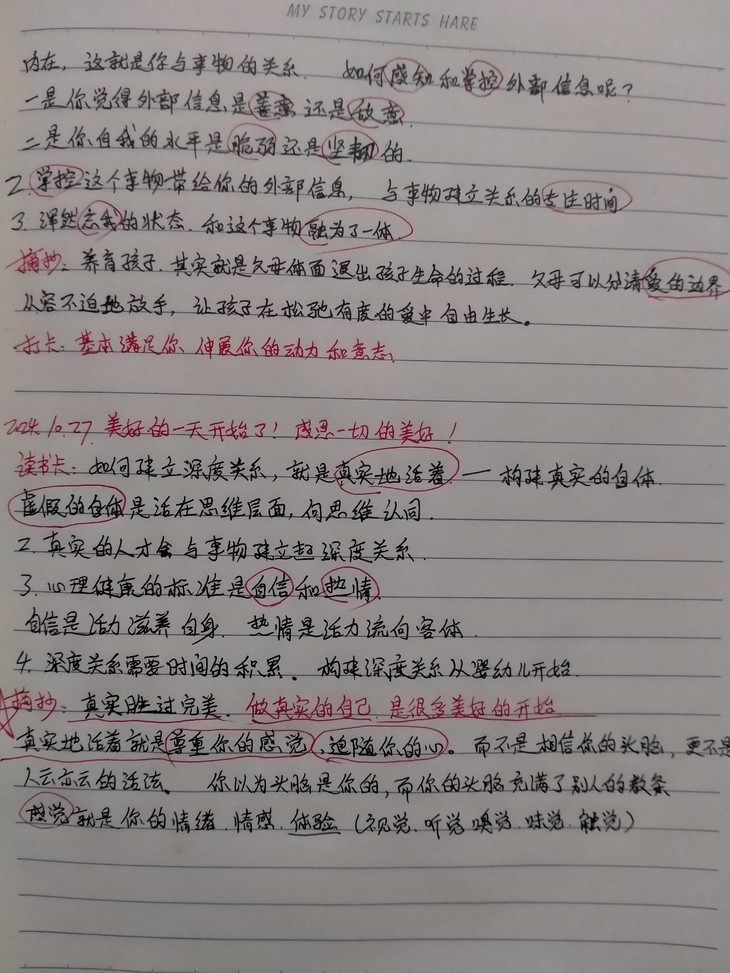 MY STORY STARTS HARE
内在，这就是你与事物的关系. 如何感知和掌控外部信息呢？
一是你觉得外部信息是善意还是敌意.
二是你自我的水平是脆弱还是坚韧的.
2. 掌控这个事物带给你的外部信息， 与事物建立关系的专注时间
3. 浑然忘我的状态. 和这个事物融为了一体.
摘抄：养育孩子. 其实就是父母体面退出孩子生命的过程. 父母可以分清爱的边界
从容不迫地放手，让孩子在松弛有度的爱中自由生长。
打卡：基本满足你 伸展你的动力和意志.
2024.10.27. 美好的一天开始了！感恩一切的美好！
读书卡：如何建立深度关系，就是真实地活着. — 构建真实的自体.
虚假的自体是活在思维层面，向思维认同.
2. 真实的人才会与事物建立起深度关系.
3. 心理健康的标准是自信和热情.
自信是活力滋养自身. 热情是活力流向客体.
4. 深度关系需要时间的积累。构建深度关系从婴幼儿开始.
摘抄：真实胜过完美. 做真实的自己 是很多美好的开始.
真实地活着就是尊重你的感觉，追随你的心。而不是相信你的头脑，更不是
人云亦云的活法。 你以为头脑是你的，而你的头脑充满了别人的教条
感觉就是你的情绪. 情感. 体验（视觉、听觉 嗅觉. 味觉. 触觉）